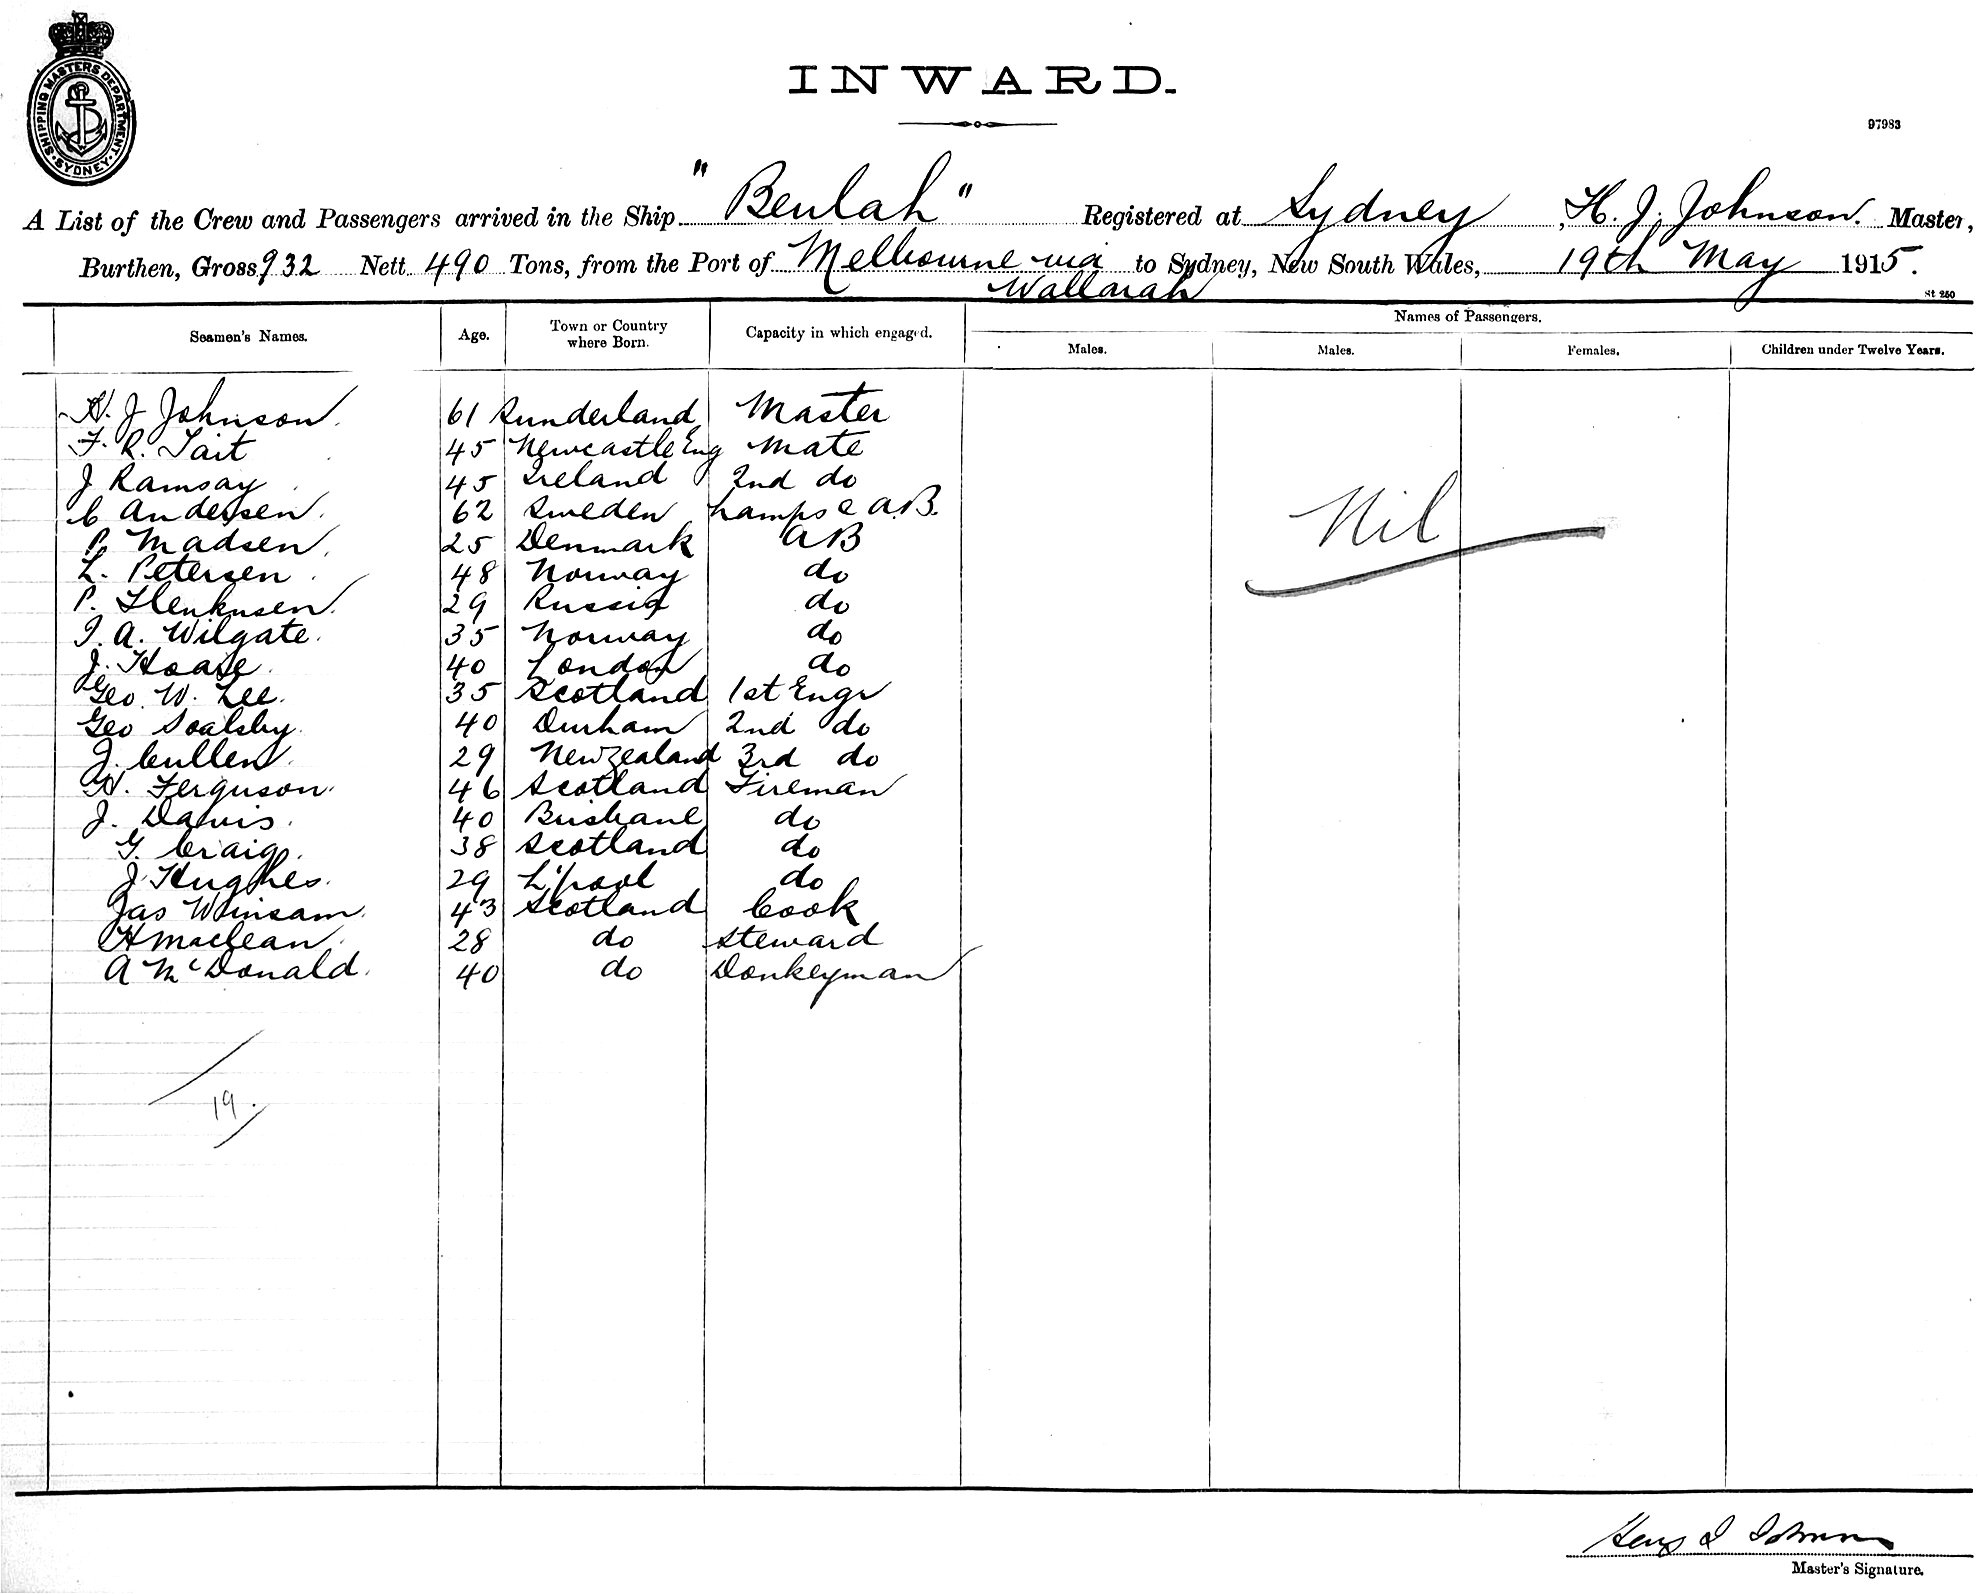 SHIPPING MASTERS DEPARTMENT SYDNEY
INWARD.
97983
A List of the Crew and Passengers arrived in the Ship "Beulah" Registered at Sydney, H. J. Johnson. Master,
Burthen, Gross 932 Nett 490 Tons, from the Port of Melbourne via to Sydney, New South Wales, 19th May 1915.
Wallarah
St 250
Seamen's Names. Age. Town or Country where Born. Capacity in which engaged. Names of Passengers.
Males. Males. Females. Children under Twelve Years.
H. J Johnson. 61 Sunderland Master
F. R. Tait 45 Newcastle Eng Mate
J Ramsay 45 Ireland 2nd do
C Andersen. 62 Sweden Lamps & A.B.
P. Madsen. 25 Denmark AB
L. Petersen. 48 Norway do
P. 29 Russia do
J. A. Wilgate. 35 Norway do
J. Hoare. 40 London do
Geo. W. Lee. 35 Scotland 1st Engr
Geo Soalsby. 40 Durham 2nd do
J. Cullen. 29 New Zealand 3rd do
H. Ferguson. 46 Scotland Fireman
J. Davis. 40 Brisbane do
G. Craig. 38 Scotland do
J Hughes. 29 L'pool do
Jas Winsam. 43 Scotland Cook
H Maclean. 28 do Steward
A McDonald. 40 do Donkeyman
Nil
19.
Master's Signature.